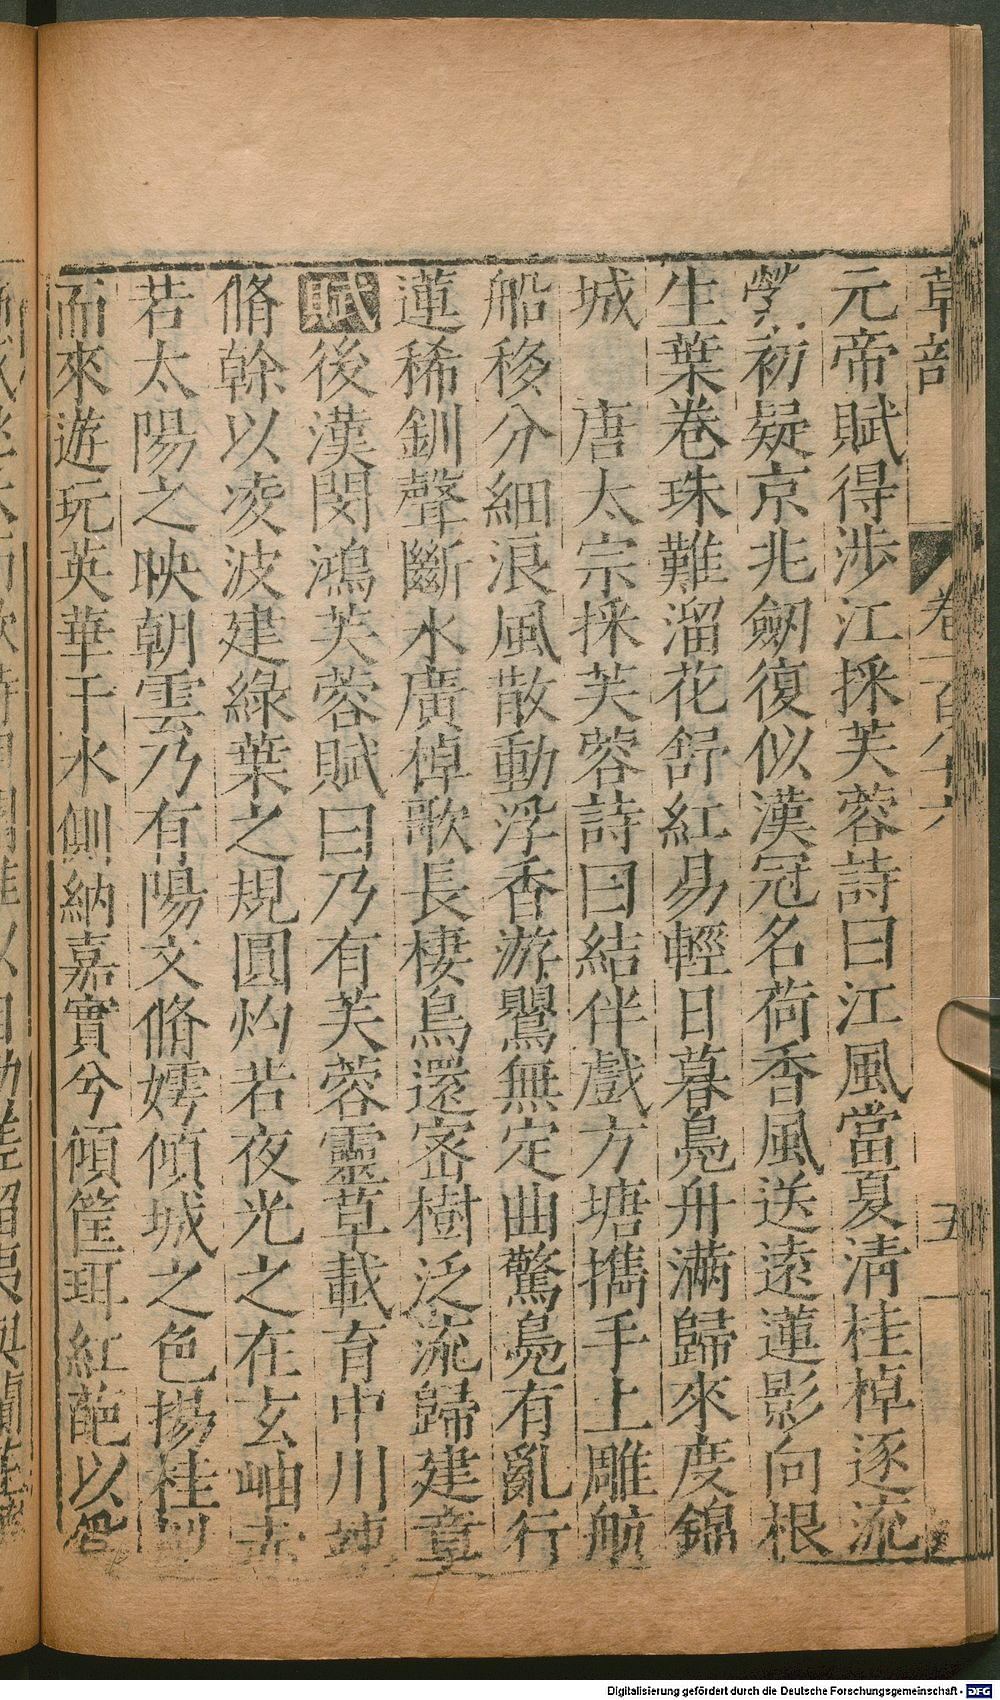 草部 卷一百八十六 五
元帝賦得涉江採芙蓉詩曰江風當夏清桂棹逐流
縈初疑京兆劒復似漢冠名荷香風送遠蓮影向根
生葉卷珠難溜花舒紅易輕日暮鳧舟滿歸來度錦
城 唐太宗採芙蓉詩曰結伴戲方塘攜手上雕航
船移分細浪風散動浮香游鸎無定曲驚鳧有亂行
蓮稀釧聲斷水廣棹歌長棲烏還密樹泛流歸建章
賦後漢閔鴻芙蓉賦曰乃有芙蓉靈草載育中川竦
脩幹以凌波建綠葉之規圓灼若夜光之在玄岫赤
若太陽之映朝雲乃有陽文脩嫮傾城之色揚桂枻
而來遊玩英華于水側納嘉實兮傾筐珥紅葩以為
Digitalisierung gefördert durch die Deutsche Forschungsgemeinschaft - DFG